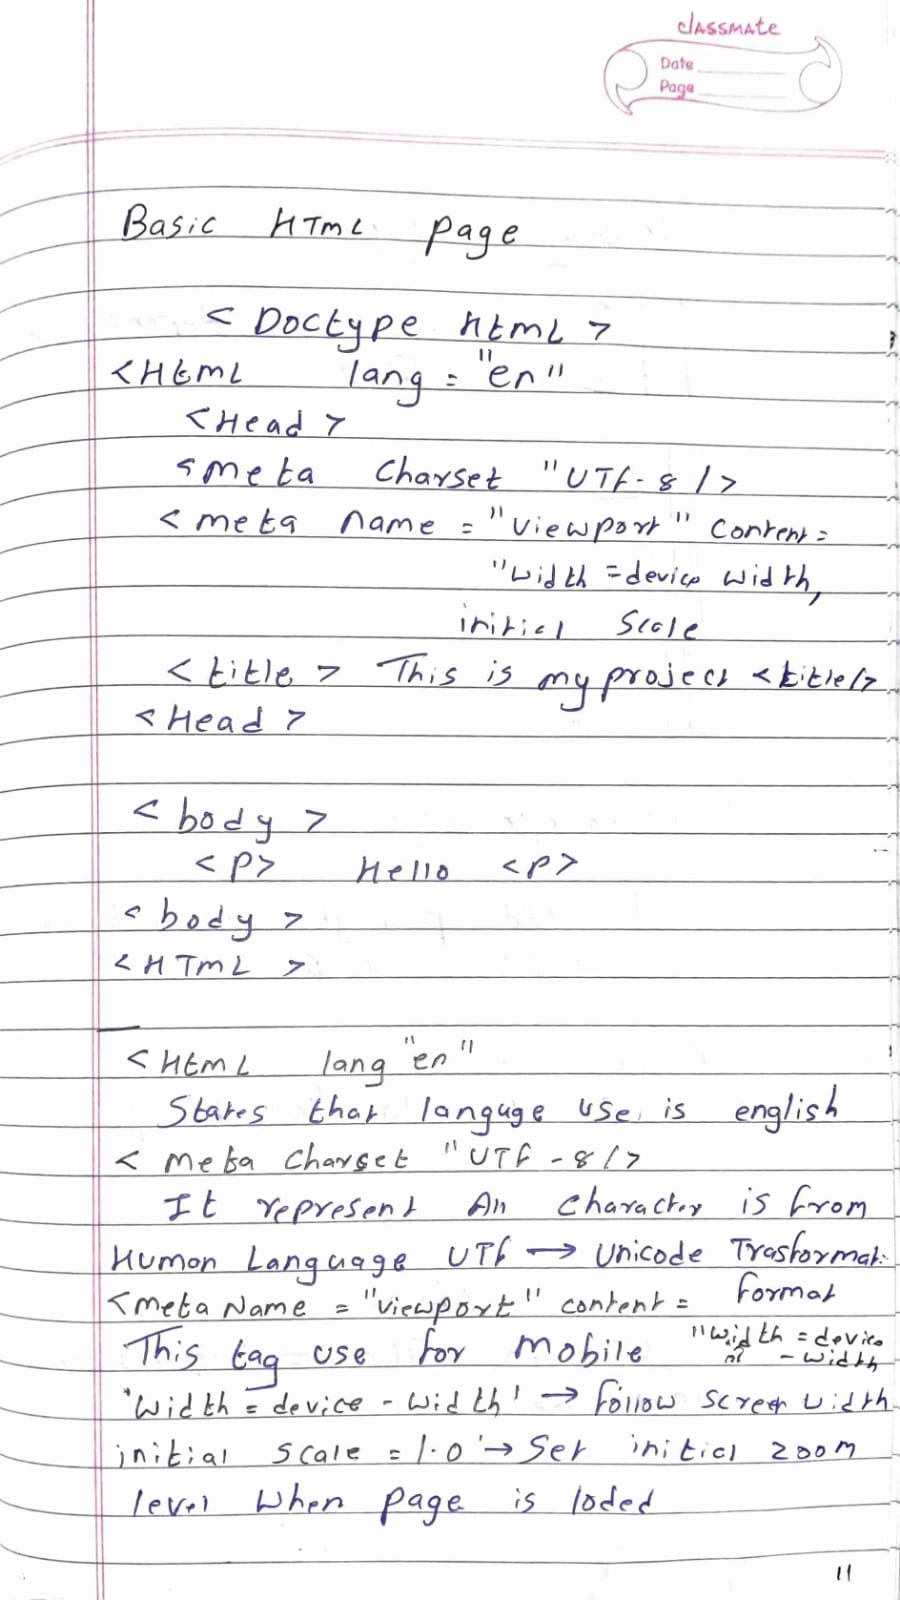 classmate
Date
Page
Basic HTML page
< Doctype html >
<Html lang = "en"
<Head >
<meta Charset "UTF-8 />
< meta name = "viewport" Content =
"width = device width,
initial Scale
< title > This is my project <title/>
< Head >
< body >
<P> Hello <P>
< body >
< HTML >
< Html lang "en"
States that languge use is english
< meta Charset "UTF - 8 />
It represent An character is from
Human Language UTF → Unicode Trasformat.
format
<meta Name = "viewport" content =
"width = device
- width
This tag use for mobile
'Width = device - width' → follow screen width
initial scale = 1.0' → Set initial zoom
level when page is loded
11